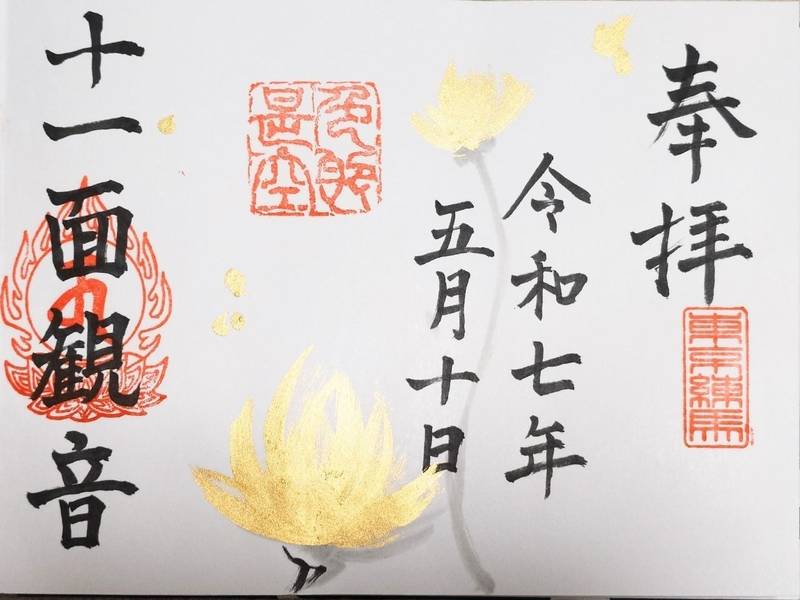 奉拝
東京練馬
令和七年
五月十日
色即是空
十一面観音